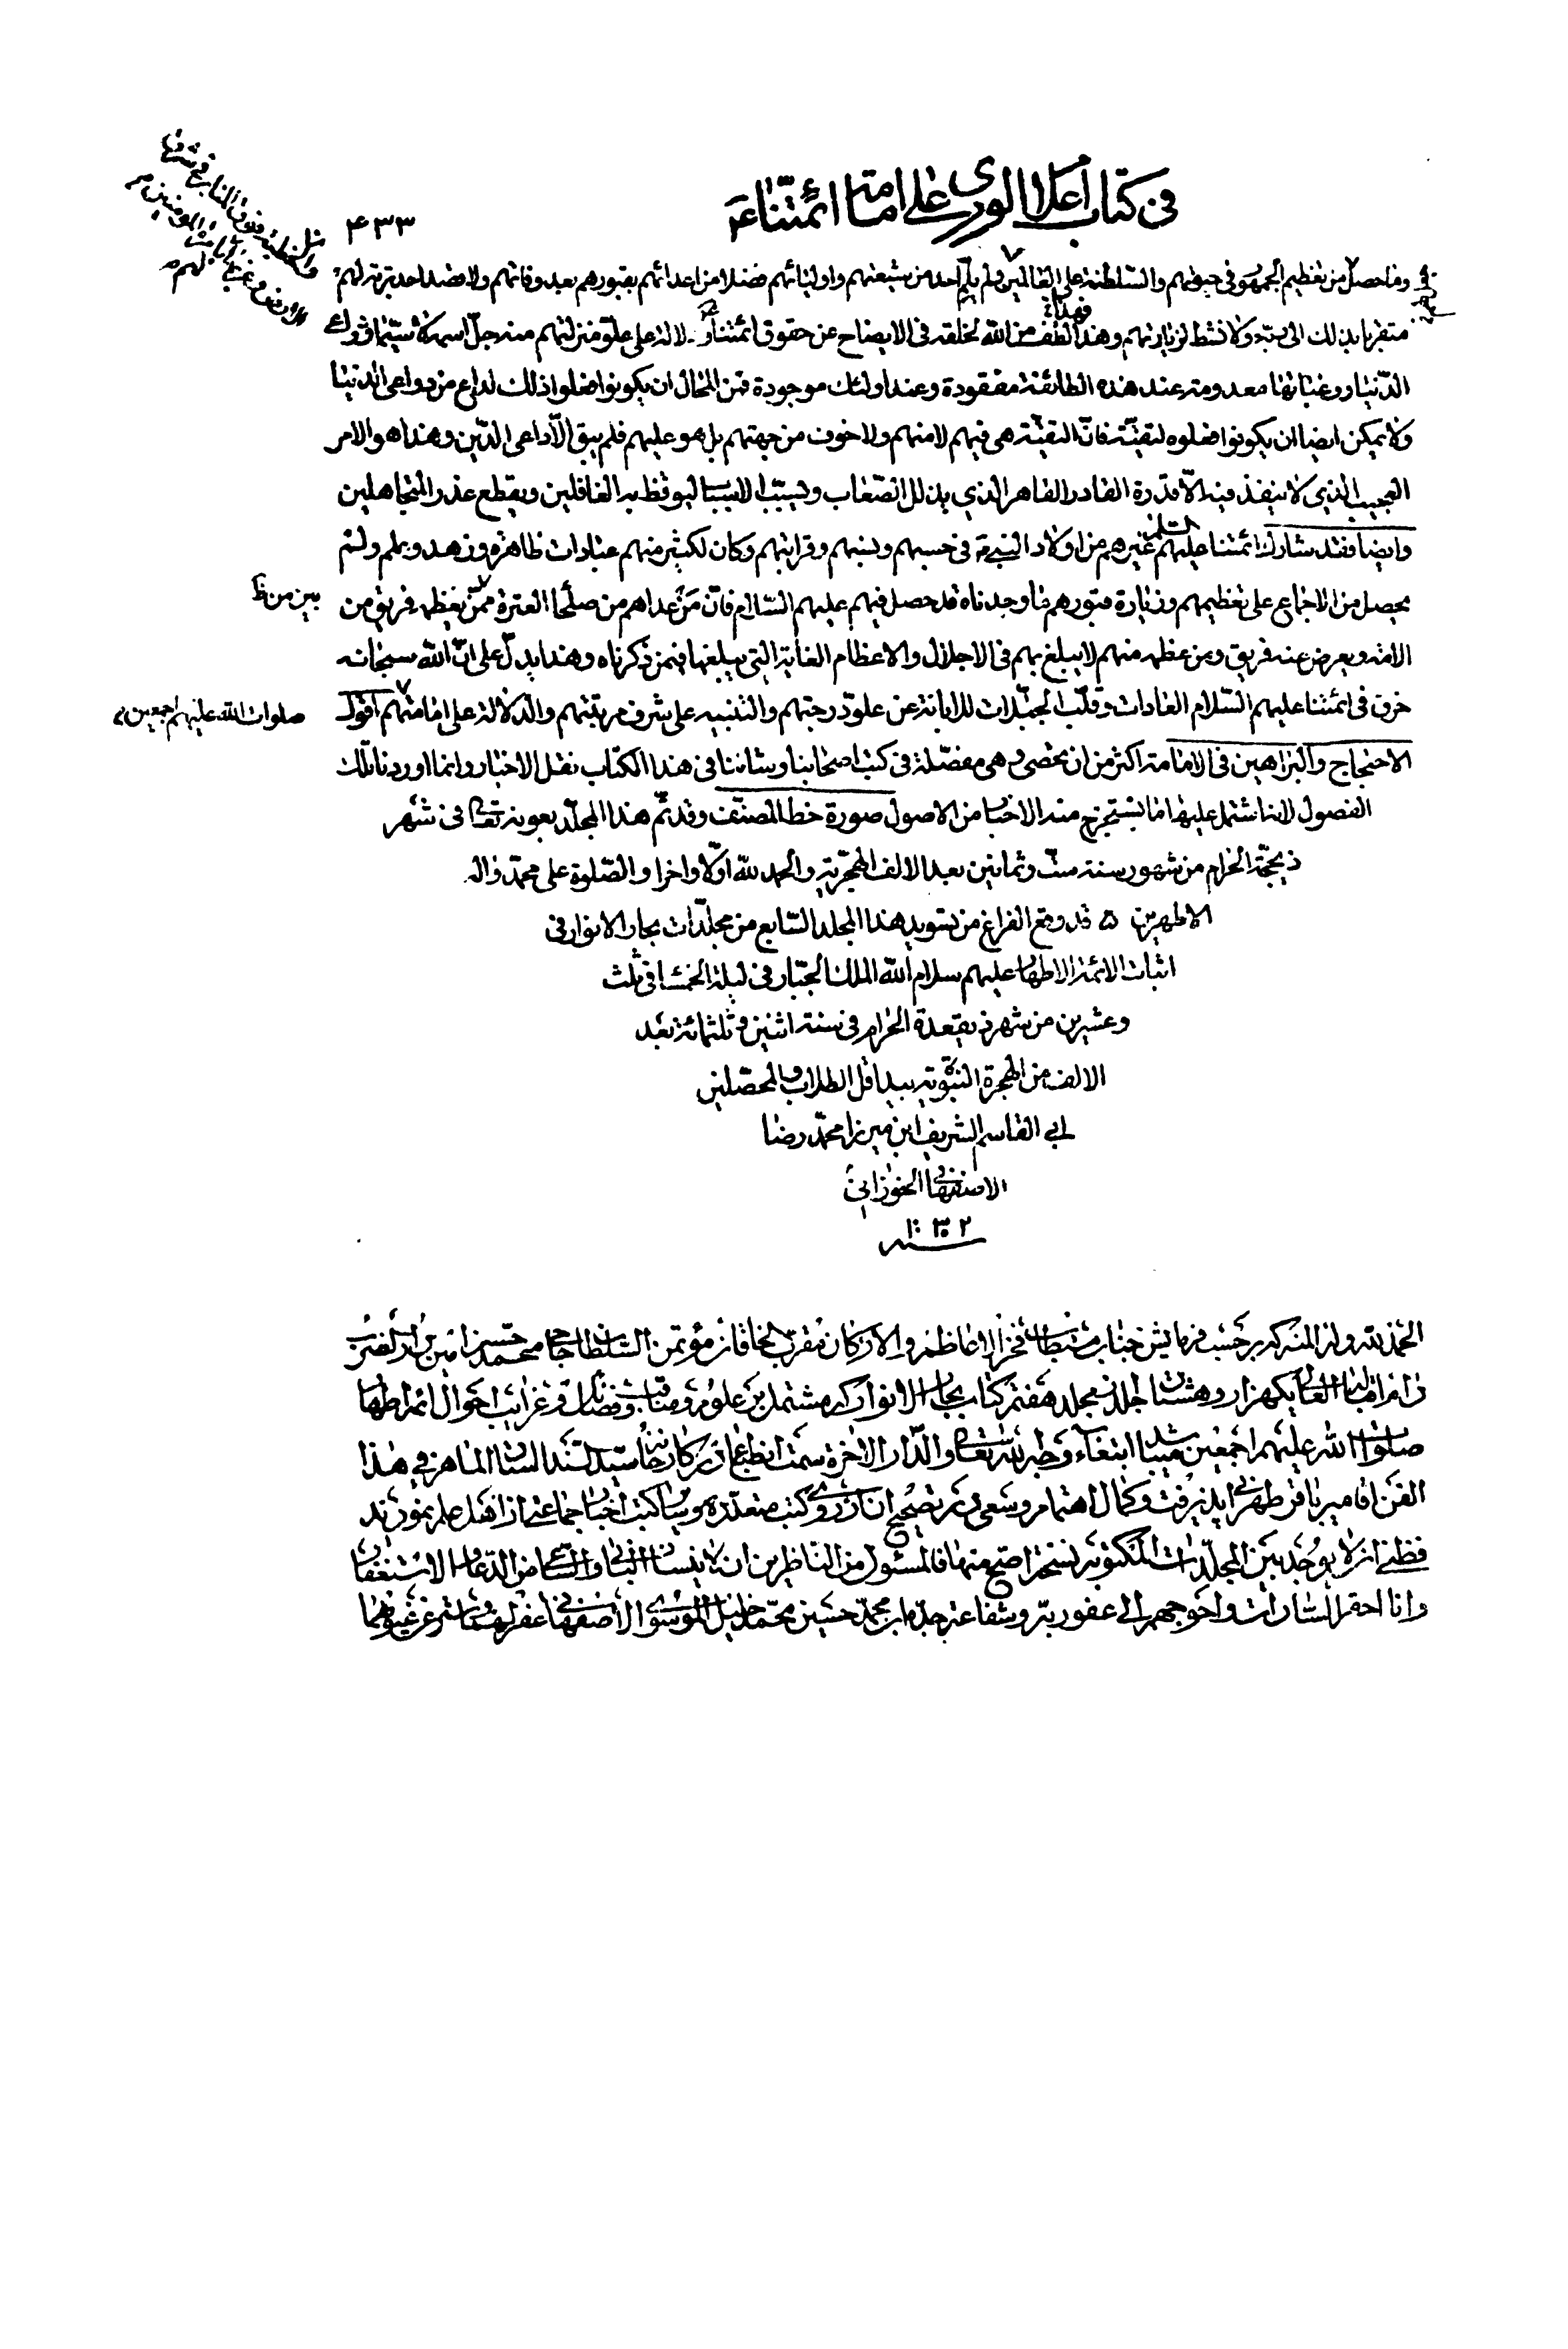 في كتاب اعلام الورى على امامة ائمتنا ع
۴۳۳
وما حصل من تعظيم الجمهور في حيوتهم والسلطنة على العالمين ولم يلم احد من شيعتهم واوليائهم فضلا من اعدائهم بقبورهم بعد وفاتهم ولا قصد احد تربة لهم
متقربا بذلك الى ربه ولا نشط لزيارتهم وهذا لطف من الله لخلقه في الايضاح عن حقوق ائمتنا ودلالة على علو منزلتهم منه جل اسمه لا سيما ودواعي
الدنيا ورغباتها معدومة عند هذه الطائفة مفقودة وعند اولئك موجودة فمن المحال ان يكونوا فعلوا ذلك لداع من دواعي الدنيا
ولا يمكن ايضا ان يكونوا فعلوه لتقية فان التقية هي فيهم لا منهم ولا خوف من جهتهم بل هو عليهم فلم يبق الا داعي الدين وهذا هو الامر
العجيب الذي لا ينفذ فيه الا قدرة القادر القاهر الذي يذلل الصعاب ويسبب الاسباب ليوقظ به الغافلين ويقطع عذر المتجاهلين
وايضا فقد شارك ائمتنا عليهم السلم غيرهم من اولاد النبي ص في حسبهم ونسبهم وقرابتهم وكان لكثير منهم عبادات ظاهرة وزهد وعلم ولم
يحصل من الاجماع على تعظيمهم وزيارة قبورهم ما وجدناه قد حصل فيهم عليهم السلام فان من عداهم من صلحاء العترة ممن يعظمه فريق من
بين من ظ
الامة ويعرض عنه فريق ومن عظمه منهم لا يبلغ بهم في الاجلال والاعظام الغاية التي يبلغها فيمن ذكرناه وهذا يدل على ان الله سبحانه
خرق في ائمتنا عليهم السلام العادات وقلب الجبلات للابانة عن علو درجتهم والتنبيه على شرف مرتبتهم والدلالة على امامتهم اقول
صلوات الله عليهم اجمعين
الاحتجاج والبراهين في الامامة اكثر من ان تحصى وهي مفصلة في كتب اصحابنا وشاننا في هذا الكتاب نقل الاخبار وانما اوردنا تلك
الفصول لانها تشتمل عليها ما يستخرج منه الاخبار من الاصول صورة خط المصنف وقد تم هذا المجلد بعونه تعالى في شهر
ذيحجة الحرام من شهور سنة ست وثمانين بعد الالف الهجرية والحمد لله اولا واخرا والصلوة على محمد واله
الاطهرين قد وقع الفراغ من تسويد هذا المجلد السابع من مجلدات بحار الانوار في
اثبات الائمة الاطهار عليهم سلام الله الملك الجبار في ليلة الخمسا في ثلث
وعشرين من شهر ذيقعدة الحرام في سنة اثنين وثلثمائة بعد
الالف من الهجرة النبوية بيد اقل الطلاب والمحصلين
ابي القاسم الشريف ابن ميرزا محمد رضا
الاصفهاني الخوزاني
سنه ۱۳۰۲
الحمد لله وله المنه كه بر حسب فرمايش جناب فخر الاعاظم والاركان مقرب الخاقان مؤتمن السلطان حاجي محمد حسن امين دار الضرب
يكهزار وهشتاد جلد مجلد هفتم كتاب بحار الانوار كه مشتمل بر علوم ومناقب وفضائل وغرائب احوال ائمه اطهار
صلوات الله عليهم اجمعين ميباشد ابتغاء وجه لله تعالى والدار الاخرة سمت انطباع از كارخانه سيد السند استاد الماهر في هذا
الفن اقا مير باقر طهراني پذيرفت وكمال اهتمام وسعى در تصحيح ان از روى كتب متعدده وساير كتب اخبار جماعتى از اهل علم نمودند
فظني انه لا يوجد بين المجلدات المكتوبة نسخة اصح منها فالمسئول من الناظرين ان لا ينسان الباني والساعي من الدعاء والاستغفار
وانا احقر السادات واحوجهم الى عفو ربه وشفاعة جده ابن محمد حسين محمد خليل الموسوي الاصفهاني غفر لهما